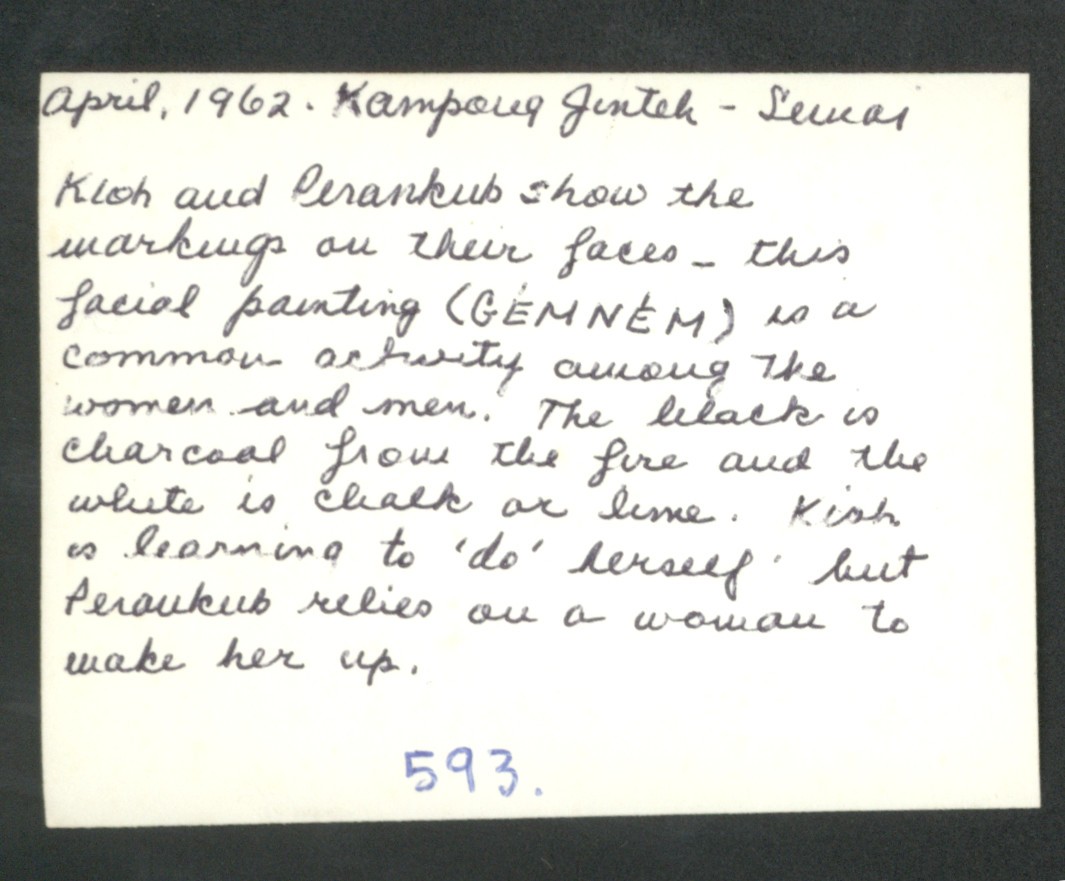 April, 1962. Kampong Jinteh - Semai
Kioh and Perankub show the
markings on their faces - this
facial painting (GĖMNĖM) is a
common activity among the
women and men. The black is
charcoal from the fire and the
white is chalk or lime. Kioh
is learning to 'do' herself but
Perankub relies on a woman to
make her up.
593.